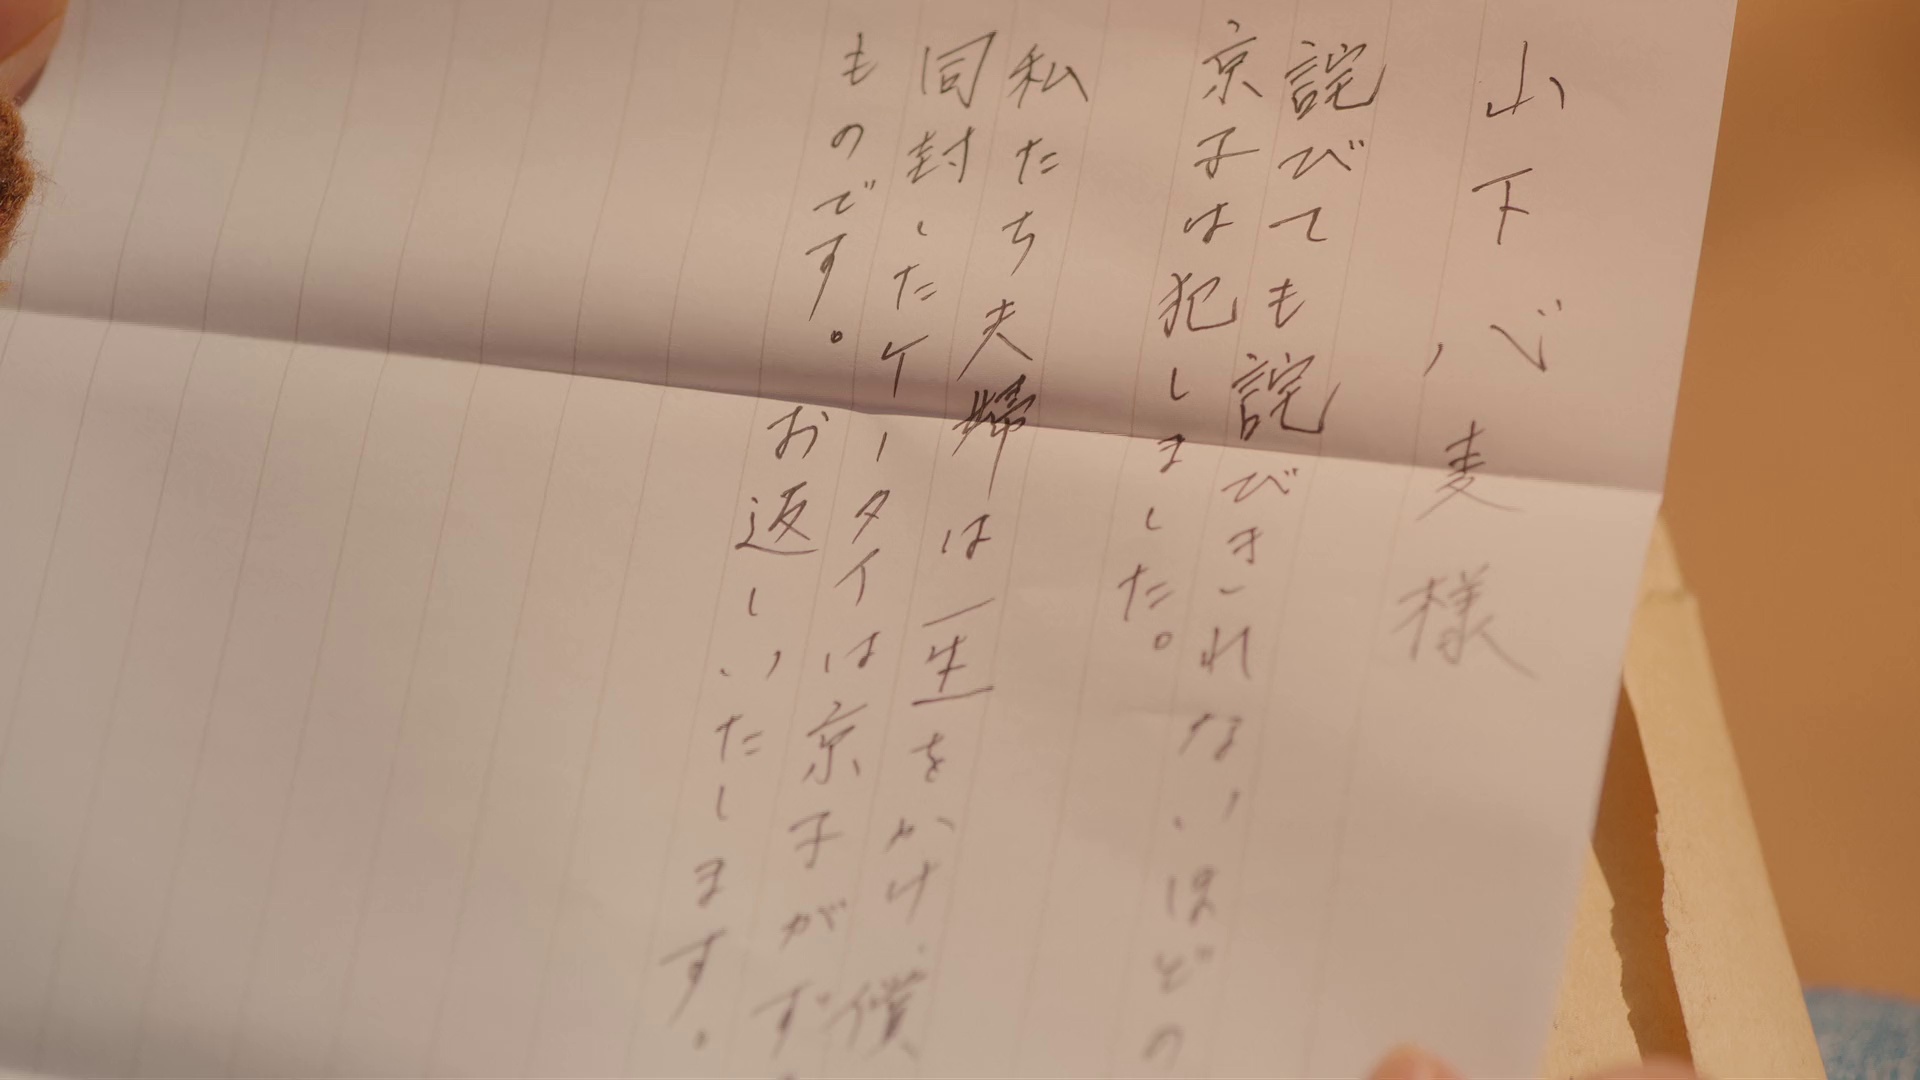 山下心麦様
詫びても詫びきれないほどの
京子は犯しました。
私たち夫婦は一生をかけ、償
同封したケータイは京子がず
ものです。お返しいたします。